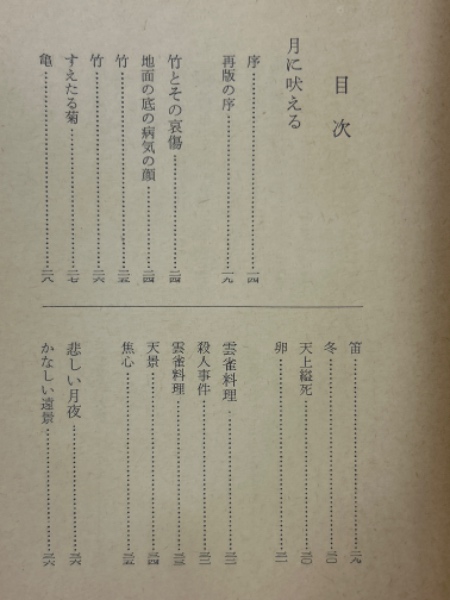 目次
月に吠える
序……一四
再版の序……一九
竹とその哀傷……二四
地面の底の病気の顔……二四
竹……二五
竹……二六
すえたる菊……二七
亀……二八
笛……二九
冬……三〇
天上縊死……三〇
卵……三一
雲雀料理……三二
殺人事件……三二
雲雀料理……三三
天景……三四
焦心……三五
悲しい月夜……三六
かなしい遠景……三六